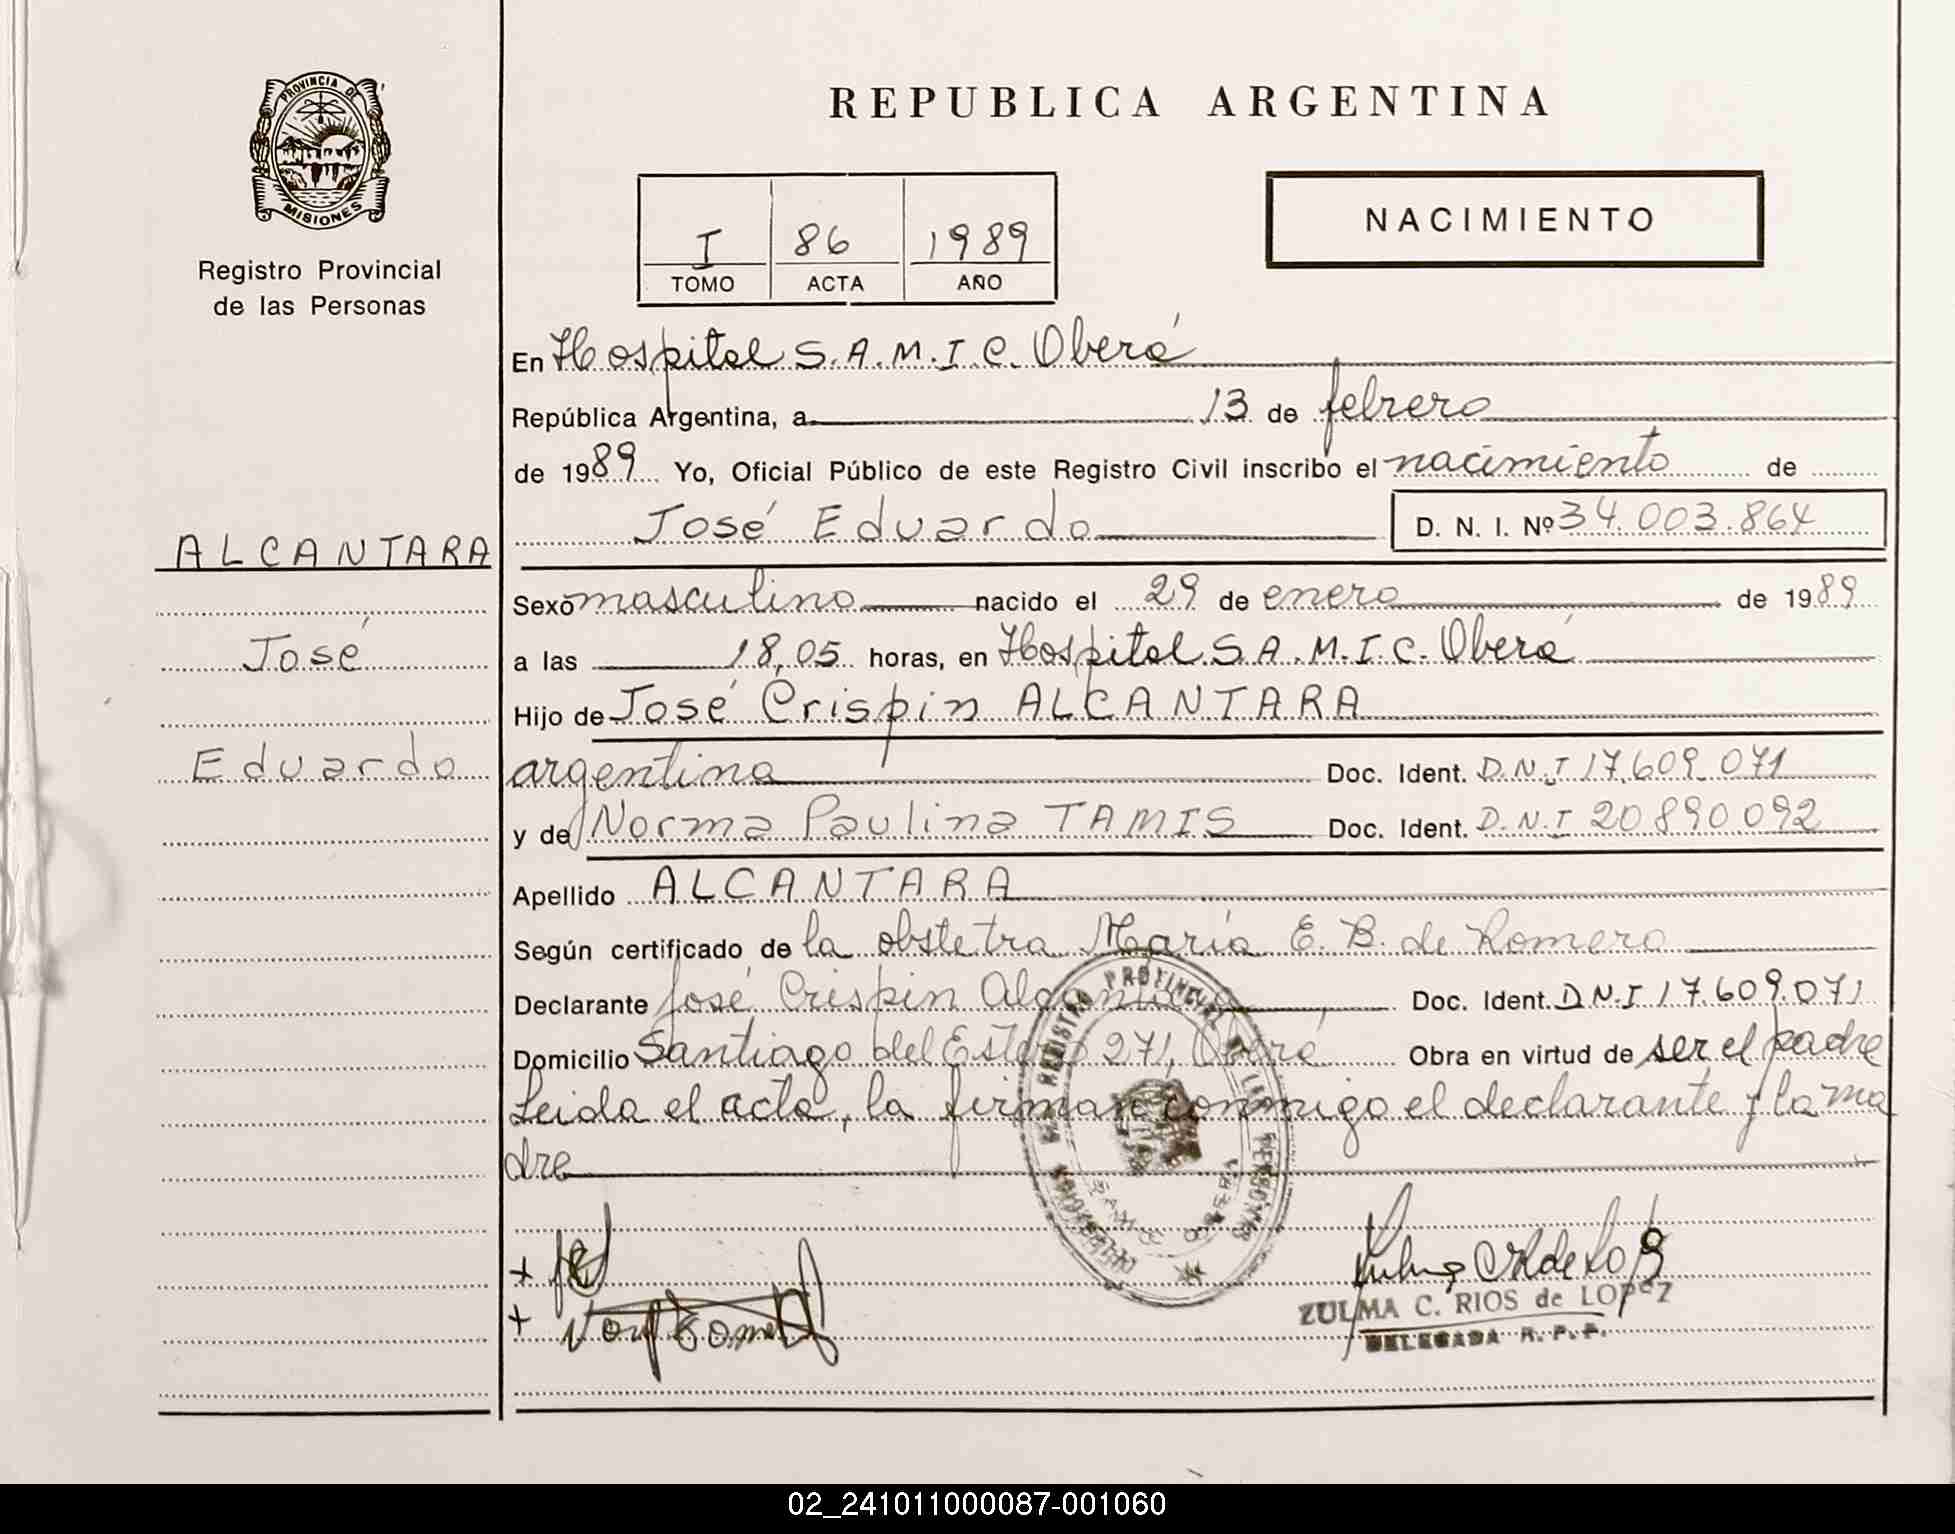 PROVINCIA DE
MISIONES
Registro Provincial
de las Personas
REPUBLICA ARGENTINA
I 86 1989
TOMO ACTA AÑO
NACIMIENTO
En Hospital S.A.M.I.C. Oberá
República Argentina, a 13 de febrero
de 1989 Yo, Oficial Público de este Registro Civil inscribo el nacimiento de
José Eduardo D. N. I. Nº 34.003.864
ALCANTARA
José
Eduardo
Sexo masculino nacido el 29 de enero de 1989
a las 18,05 horas, en Hospital S.A.M.I.C. Oberá
Hijo de José Crispin ALCANTARA
argentina Doc. Ident. D.N.I 17.609.071
y de Norma Paulina TAMIS Doc. Ident. D.N.I 20890092
Apellido ALCANTARA
Según certificado de la obstetra María E. B. de Romero
Declarante José Crispin Alcantara Doc. Ident. D.N.I 17.609.071
Domicilio Santiago del Estero 271, Oberá Obra en virtud de ser el padre
Leida el acta, la firman conmigo el declarante y la ma
dre
REGISTRO PROVINCIAL DE LAS PERSONAS
ZULMA C. RIOS de LOPEZ
DELEGADA R. P. P.
02_241011000087-001060